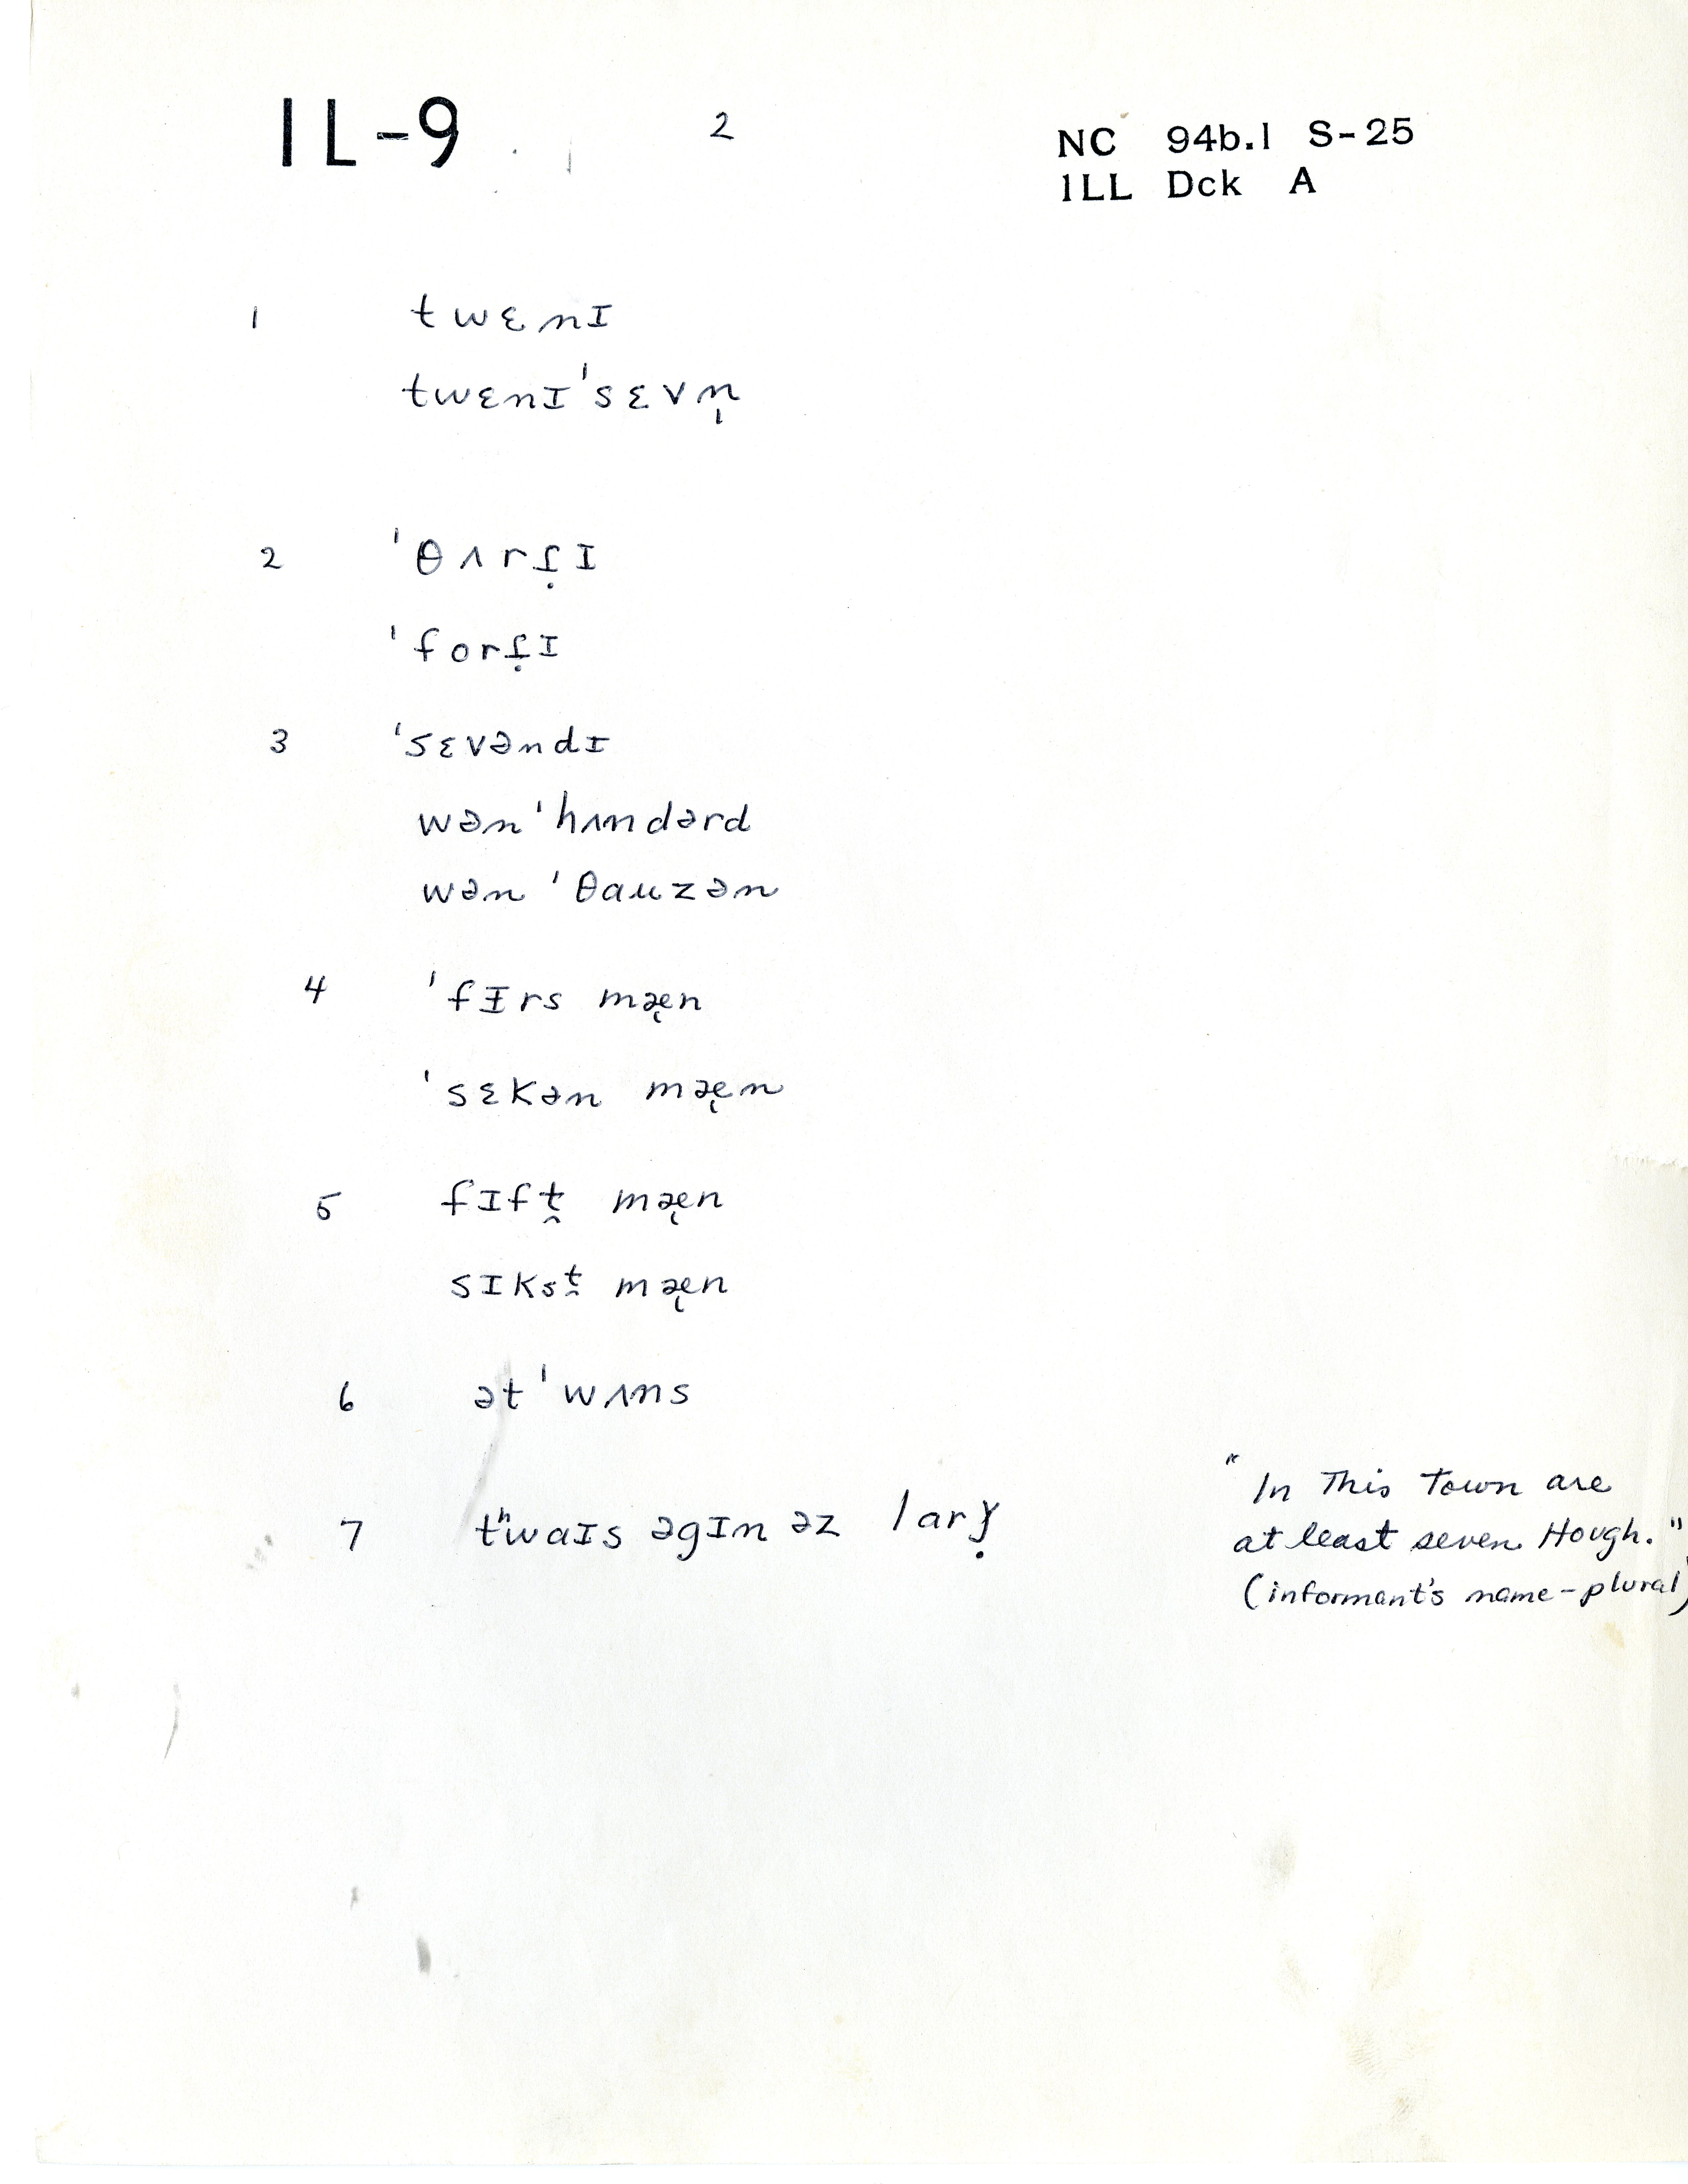 IL-9 2 NC 94b.1 S-25
ILL Dck A
1 twɛnɪ
twɛnɪˈsɛvn̩
2 ˈθʌrɾ̣ɪ
ˈforɾ̣ɪ
3 ˈsɛvəndɪ
wən ˈhʌndərd
wən ˈθauzən
4 ˈfɪ̵rs mæ̨n
ˈsɛkən mæ̨n
5 fɪft̯ mæ̨n
sɪksᵗ̯ mæ̨n
6 ət ˈwʌns
7 tʰwaɪs əgɪn əz lar
"In This Town are
at least seven Hough."
(informant's name-plural)